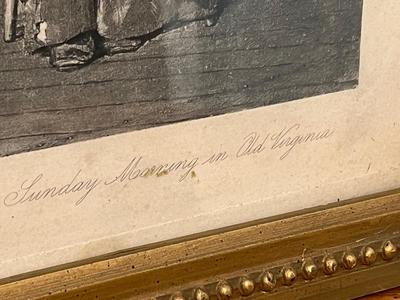 Sunday Morning in Old Virginia